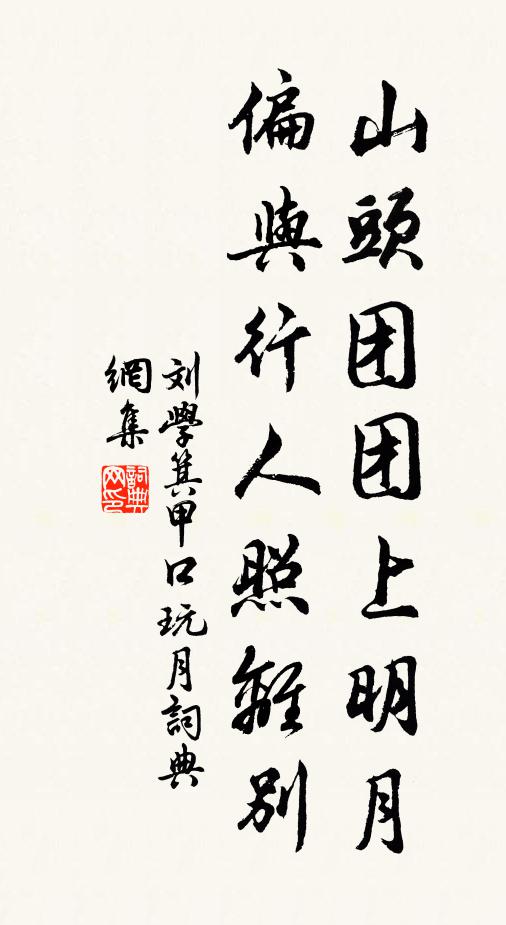 山頭团团上明月
偏與行人照離別
刘學箕甲口玩月詞典
網集
詞典網印